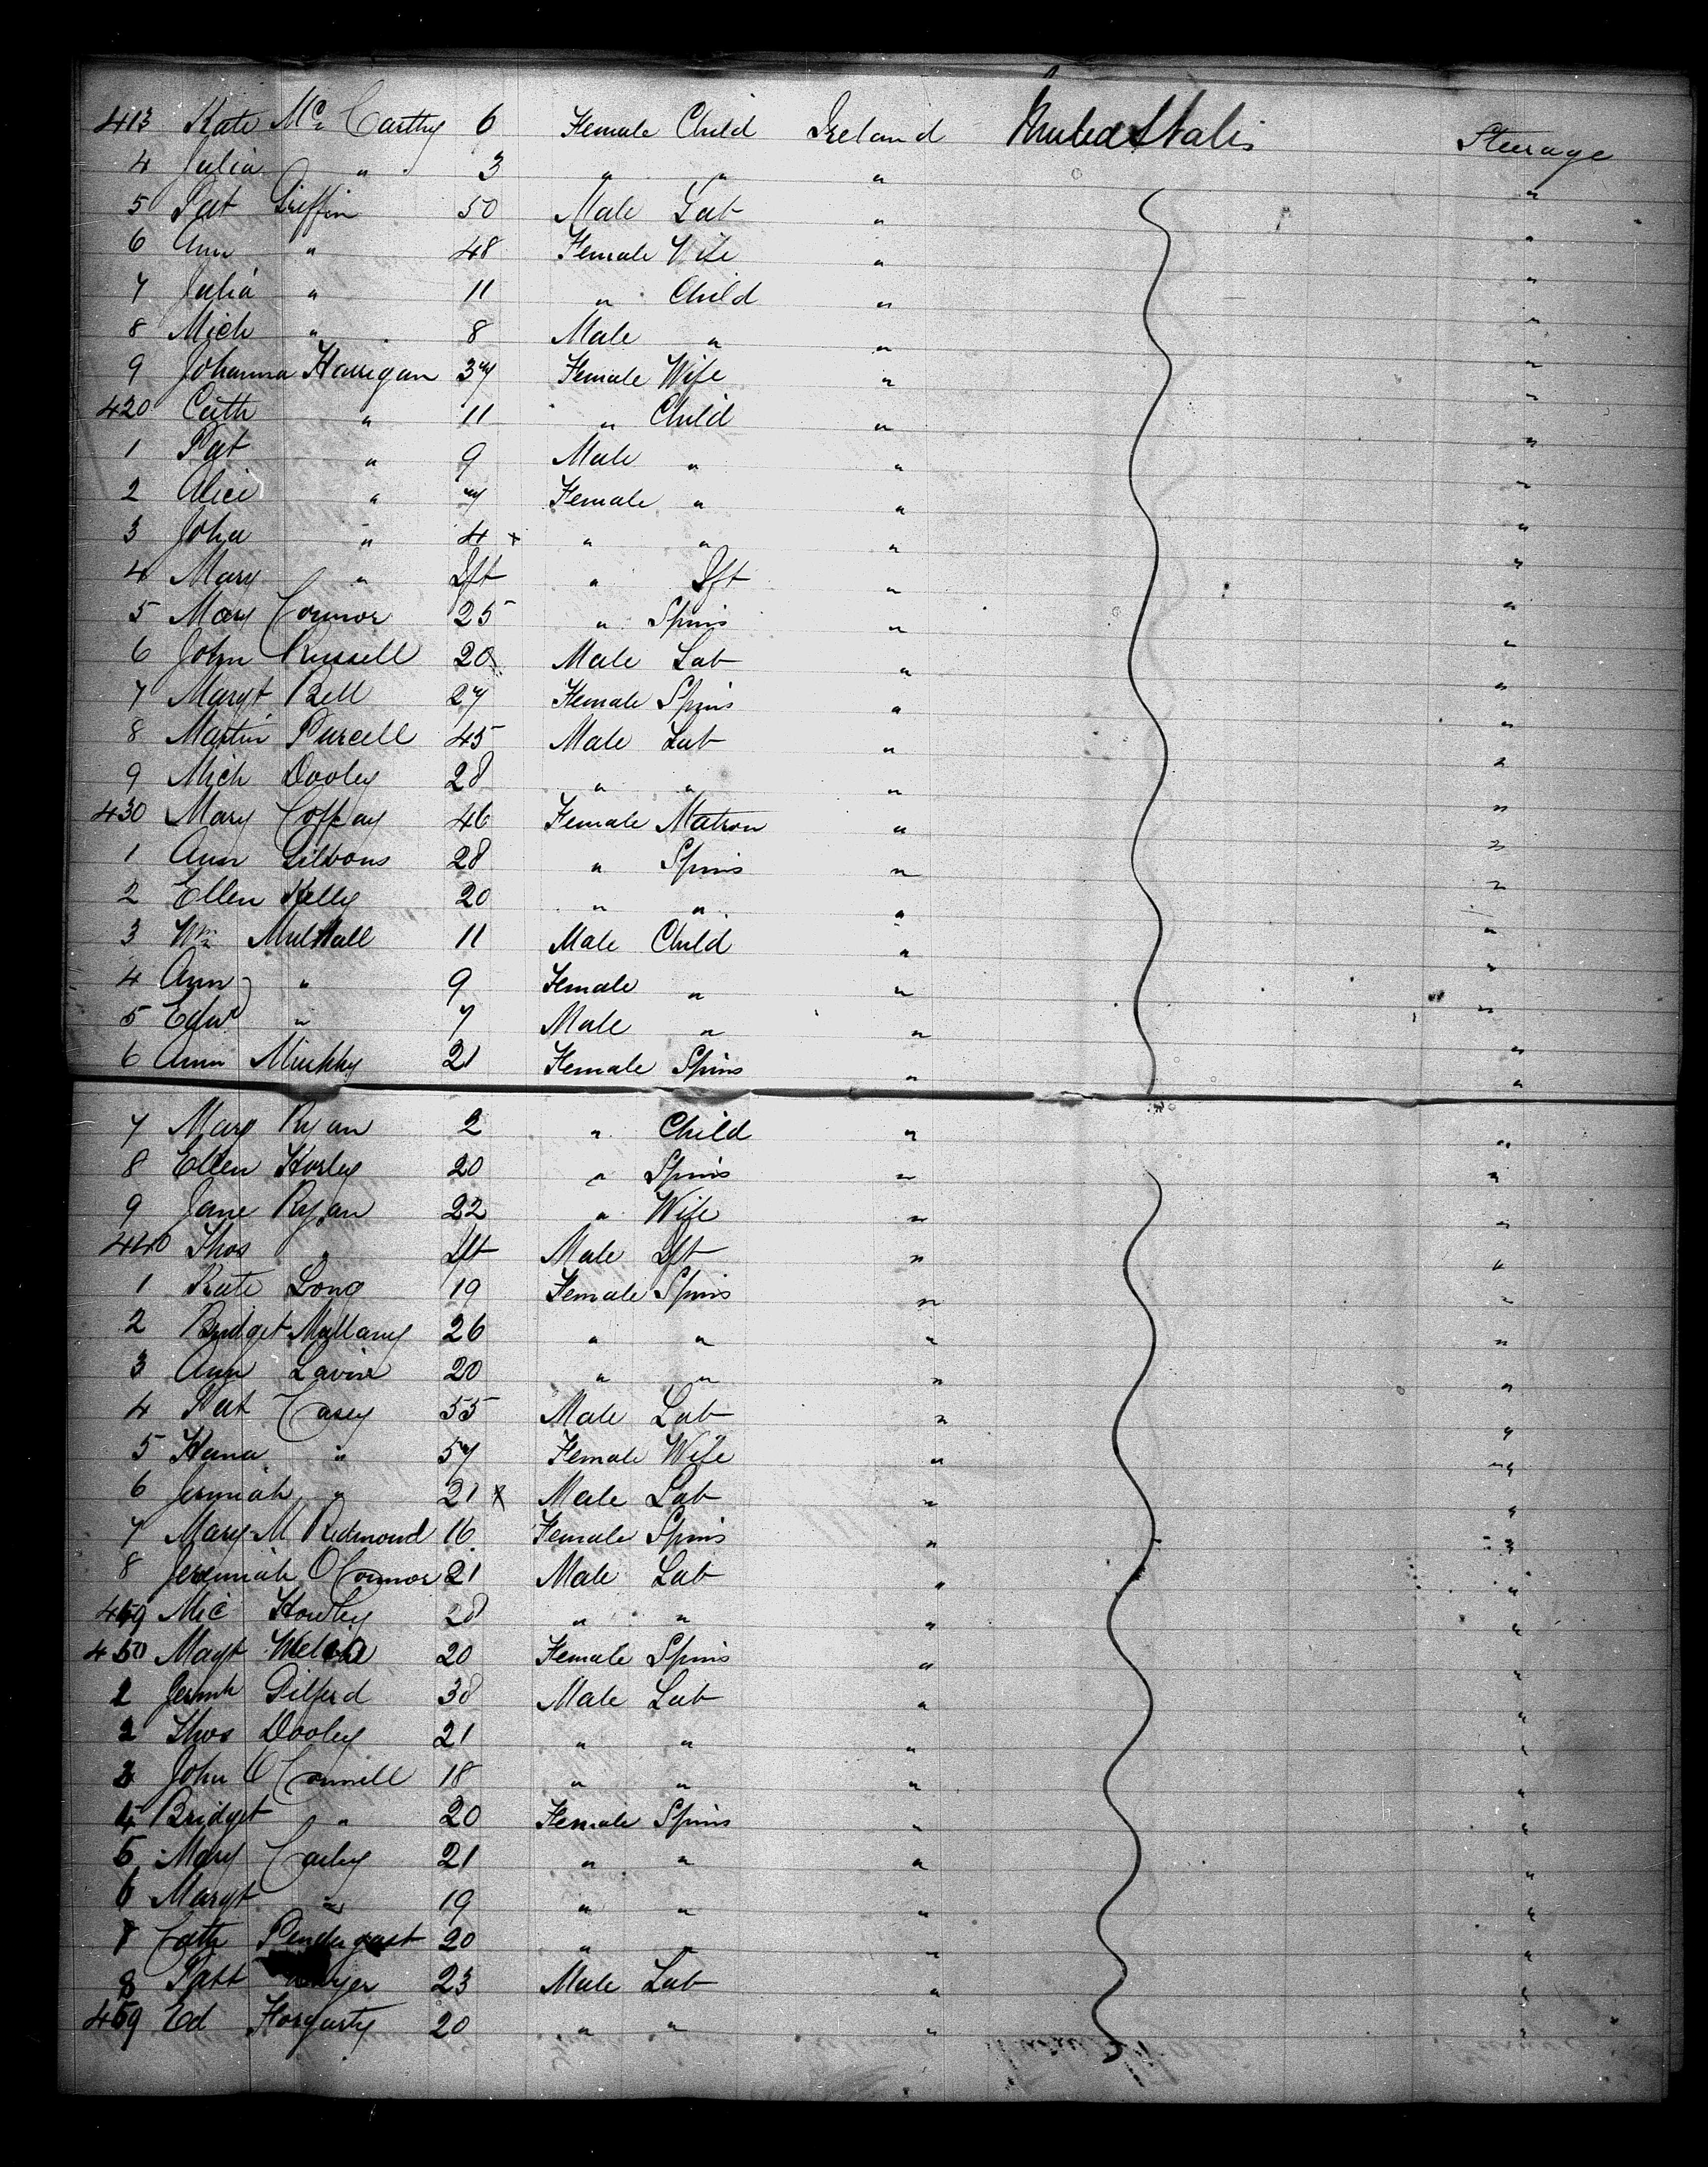 413 Kate Mc Carthy 6 Female Child Ireland United States Steerage
4 Julia " 3 " " " "
5 Pat Griffin 50 Male Lab " "
6 Ann " 48 Female Wife " "
7 Julia " 11 " Child " "
8 Mich " 8 Male " " "
9 Johanna Harrigan 37 Female Wife " "
420 Cath " 11 " Child " "
1 Pat " 9 Male " " "
2 Alice " 7 Female " " "
3 John " 4 x " " " "
4 Mary " Ift " Ift " "
5 Mary Connor 25 " Spins " "
6 John Russell 20 Male Lab " "
7 Margt Bell 27 Female Spins " "
8 Martin Purcell 45 Male Lab " "
9 Mich Dooley 28 " " " "
430 Mary Coffay 46 Female Matron " "
1 Ann Gibbons 28 " Spins " "
2 Ellen Kelly 20 " " "
3 Wm Mulhall 11 Male Child " "
4 Ann " 9 Female " " "
5 Edwd " 7 Male " " "
6 Ann Murphy 21 Female Spins " "
7 Mary Ryan 2 " Child " "
8 Ellen Horley 20 " Spins " "
9 Jane Ryan 22 " Wife " "
440 Thos " Ift Male Ift " "
1 Kate Long 19 Female Spins " "
2 Bridget Mullany 26 " " " "
3 Ann Lavin 20 " " " "
4 Pat Casey 55 Male Lab " "
5 Hana " 57 Female Wife " "
6 Jermiah " 21 x Male Lab " "
7 Mary M Redmond 16 Female Spins " "
8 Jeremiah O Connor 21 Male Lab " "
449 Mic Howley 28 " " " "
450 Magt 20 Female Spins " "
1 Jermh Gilferd 38 Male Lab " "
2 Thos Dooley 21 " " " "
3 John O Connell 18 " " " "
4 Bridget " 20 Female Spins " "
5 Mary Carley 21 " " " "
6 Margt " 19 " " " "
Cath Pendergast 20 " " " "
8 Patt 23 Male Lab " "
459 Ed Hogarty 20 " " " "